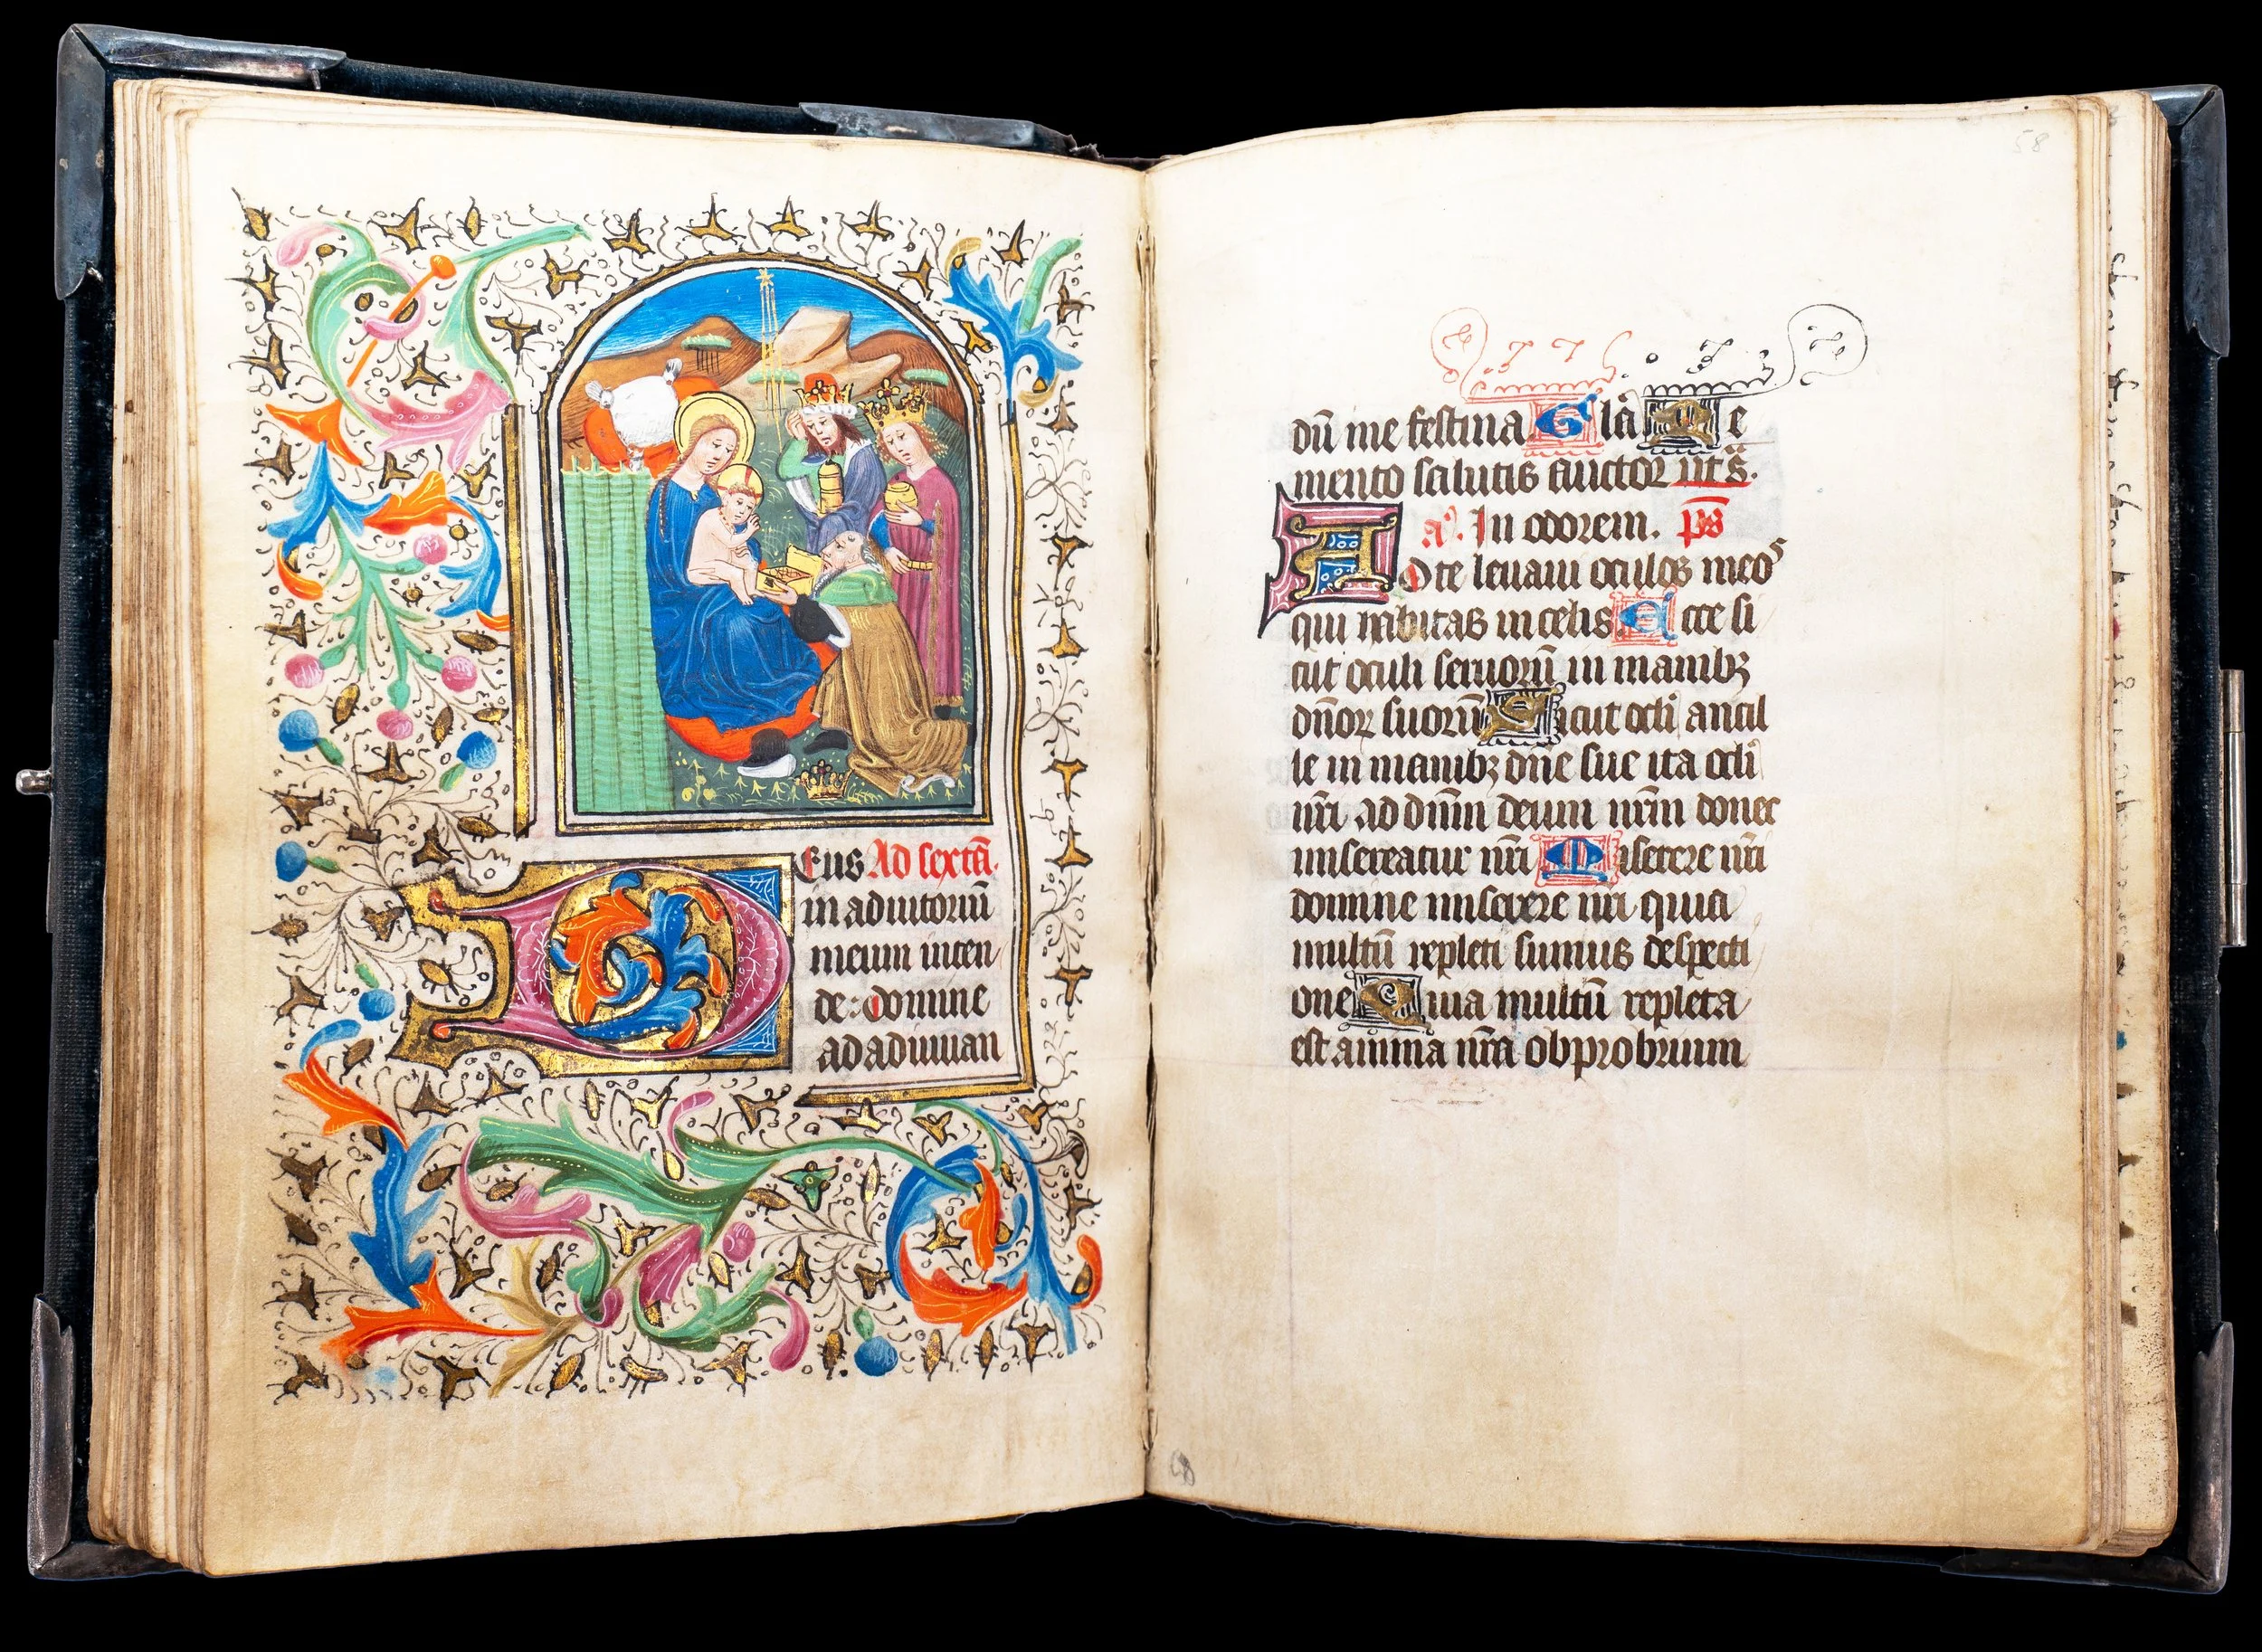 Eus Ad sextā.
in adiutoriū
meum inten
de: Domine
ad adiuuan
58
dū me festina Glā Me
mento salutis auctor ut s̄.
a. In odorem. ps
AD te leuaui oculos meos
qui habitas in celis Ecce si
cut oculi seruorū in manibꝫ
dn̄oꝝ suorū Sicut ocli ancil
le in manibꝫ dn̄e sue ita ocli
nr̄i ad dn̄m deum nr̄m donec
misereatur nr̄i Miserere nr̄i
domine miserere nri quia
multū repleti sumus despecti
one Quia multū repleta
est anima nr̄a obprobrium